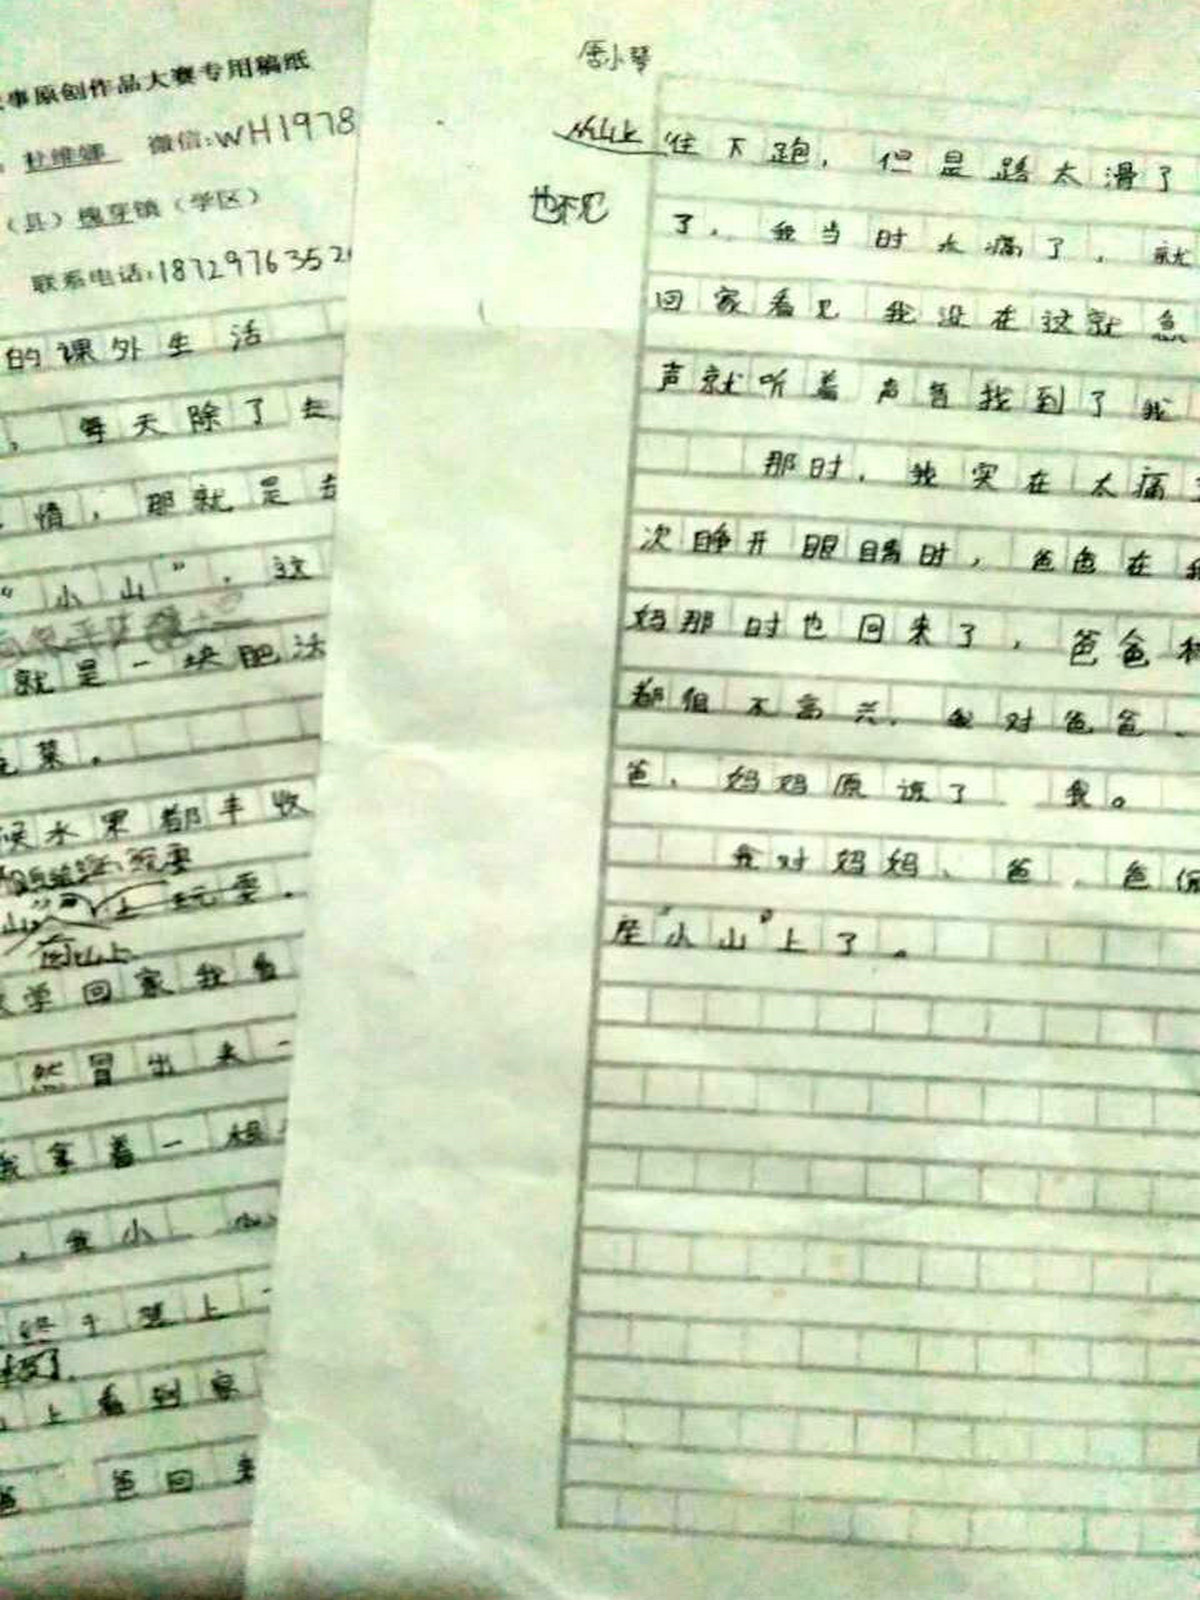 事原创作品大赛专用稿纸
杜维娜 微信:WH1978
(县)槐芽镇(学区)
联系电话:1872976352
的课外生活
,每天除了去
情,那就是去
“小山”,这
就是一块肥沃
菜。
候水果都丰收
玩耍
山”上玩耍。
山上
学回家我看
然冒出来一
我拿着一根
,我小心
终于
上看到家
爸回来
唐小琴
从山上
往下跑,但是路太滑了
也不见
了,我当时太痛了,就
回家看见我没在这就急
声就听着声音找到了我
那时,我实在太痛
次睁开眼睛时,爸爸在我
妈那时也回来了,爸爸和
都但不高兴,我对爸爸、
爸、妈妈原谅了 我。
我对妈妈、爸、爸保
座“小山”上了。